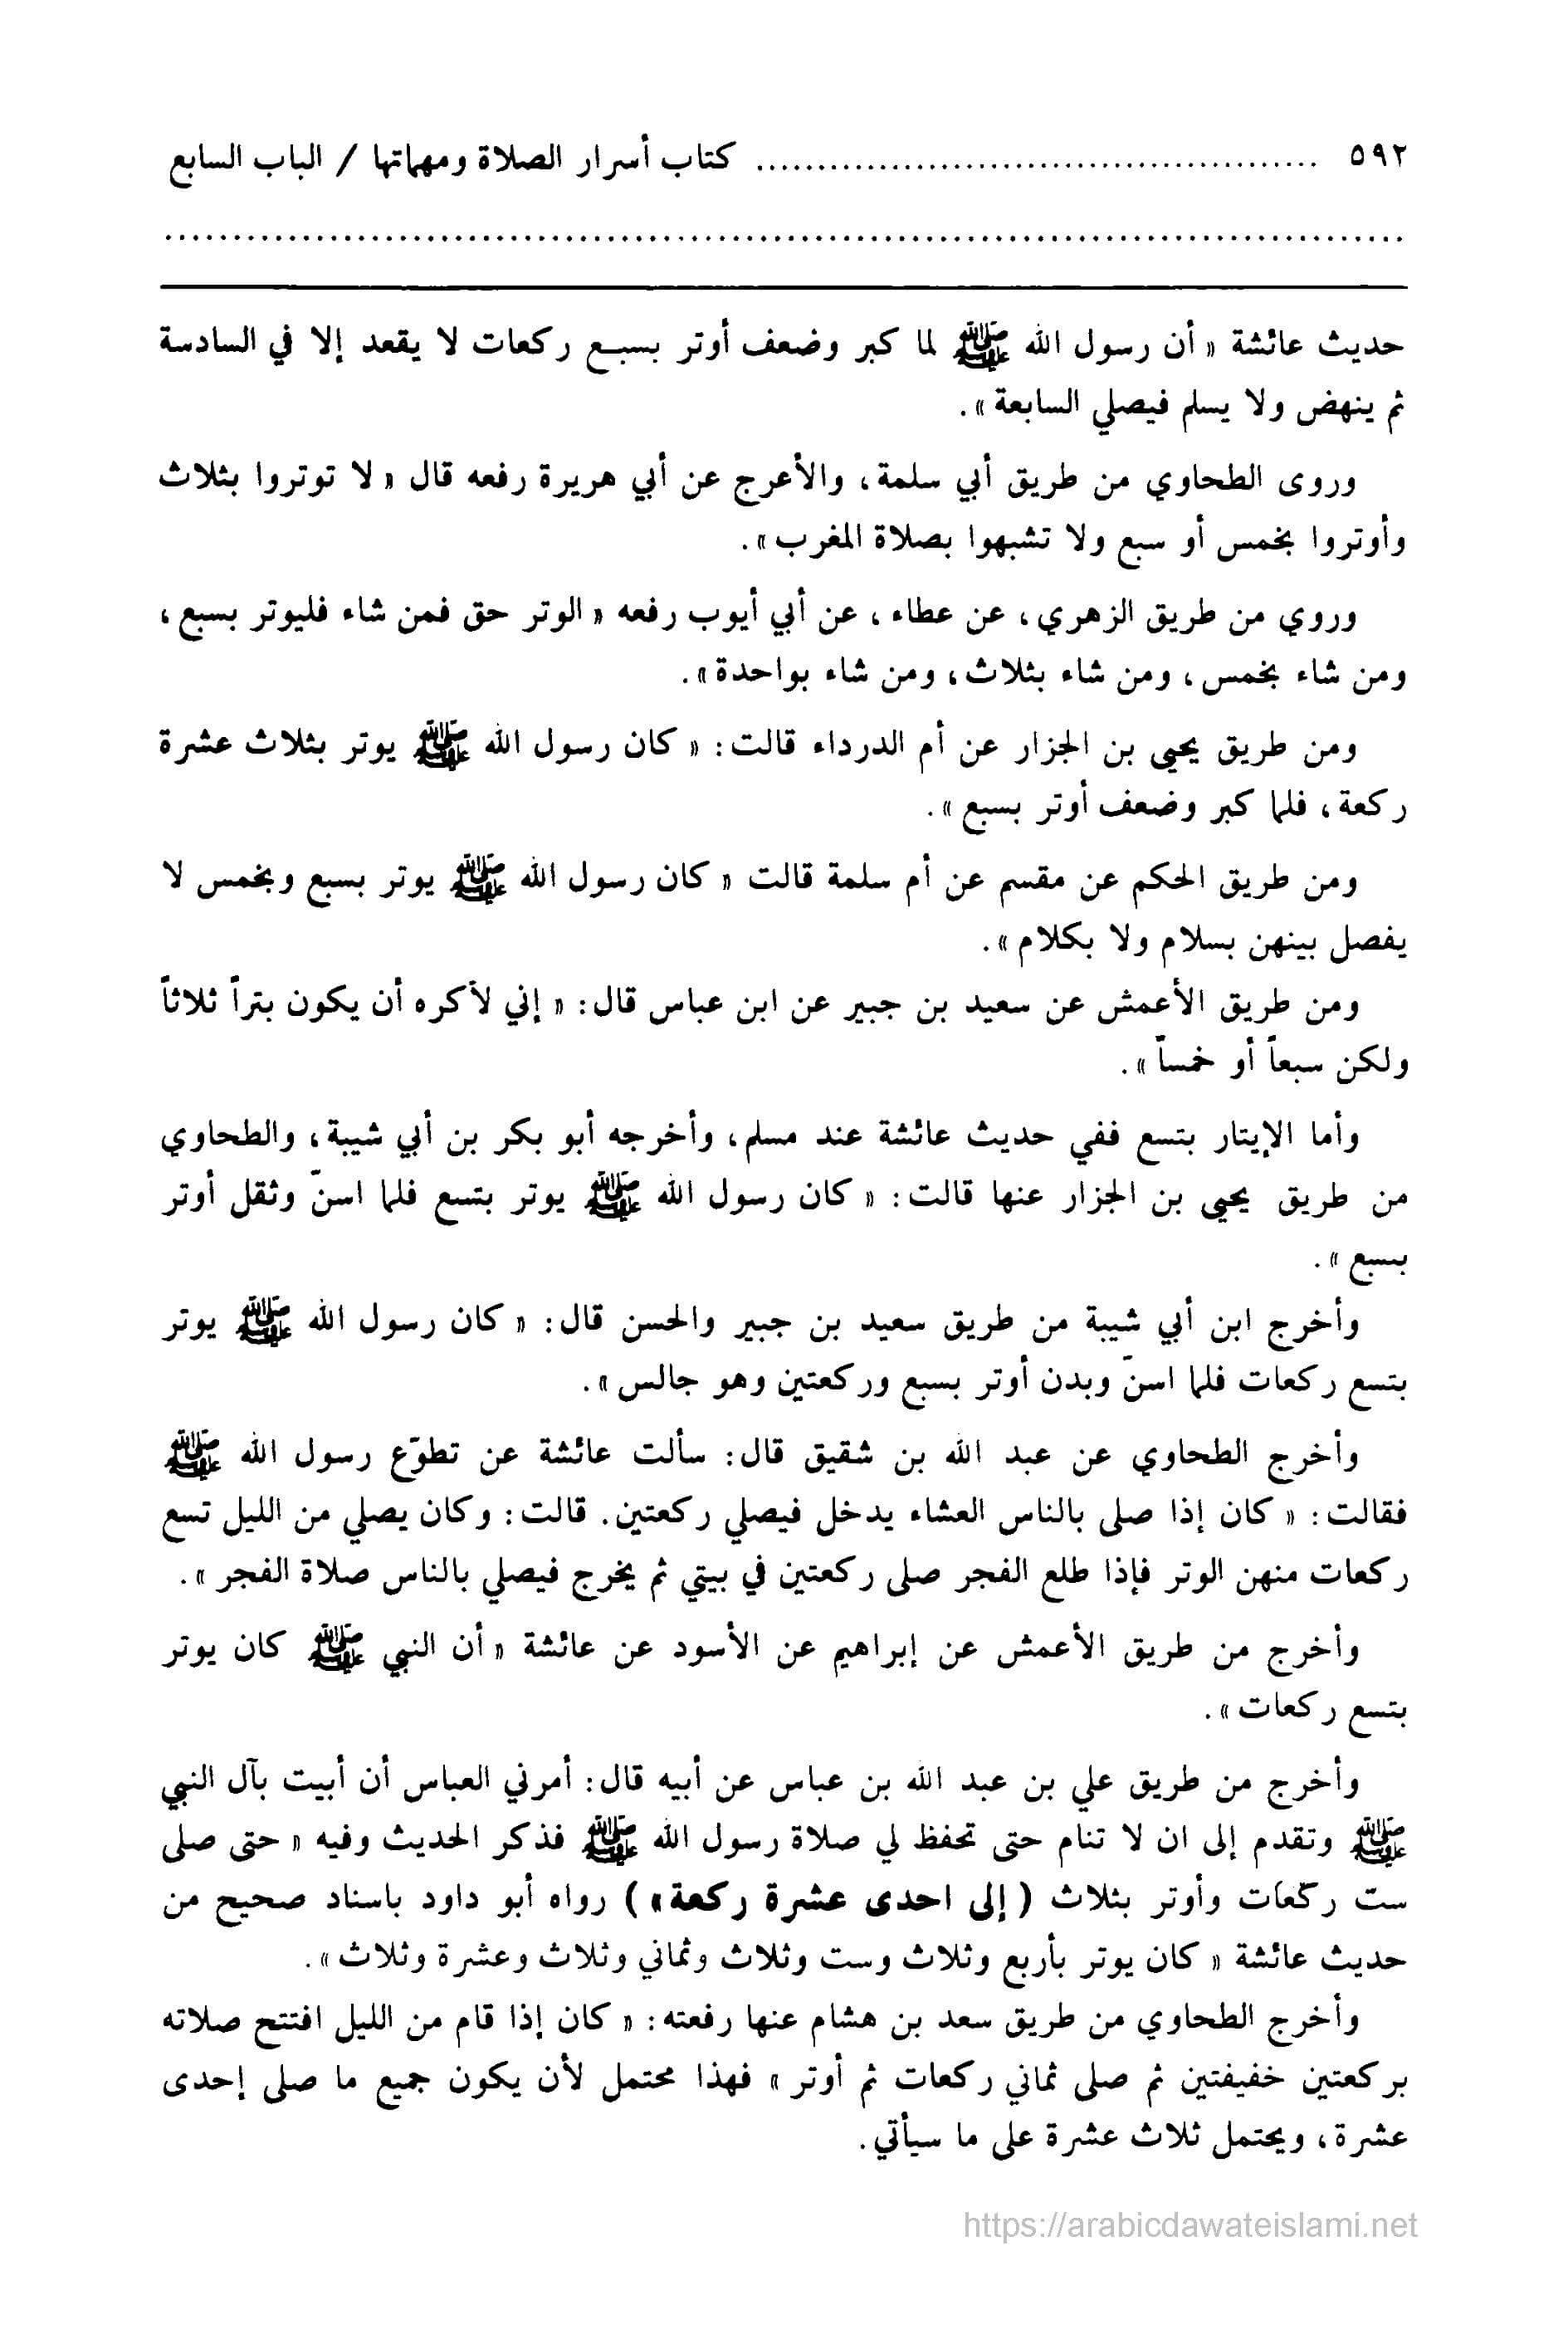 ٥٩٢ ............................................... كتاب أسرار الصلاة ومهماتها / الباب السابع
...........................................................................................
حديث عائشة « أن رسول الله ﷺ لما كبر وضعف أوتر بسبع ركعات لا يقعد إلا في السادسة
ثم ينهض ولا يسلم فيصلي السابعة ».
وروى الطحاوي من طريق أبي سلمة، والأعرج عن أبي هريرة رفعه قال « لا توتروا بثلاث
وأوتروا بخمس أو سبع ولا تشبهوا بصلاة المغرب ».
وروي من طريق الزهري، عن عطاء، عن أبي أيوب رفعه « الوتر حق فمن شاء فليوتر بسبع،
ومن شاء بخمس، ومن شاء بثلاث، ومن شاء بواحدة ».
ومن طريق يحيى بن الجزار عن أم الدرداء قالت: « كان رسول الله ﷺ يوتر بثلاث عشرة
ركعة، فلما كبر وضعف أوتر بسبع ».
ومن طريق الحكم عن مقسم عن أم سلمة قالت « كان رسول الله ﷺ يوتر بسبع وبخمس لا
يفصل بينهن بسلام ولا بكلام ».
ومن طريق الأعمش عن سعيد بن جبير عن ابن عباس قال: « إني لأكره أن يكون بتراً ثلاثاً
ولكن سبعاً أو خمساً ».
وأما الإيتار بتسع ففي حديث عائشة عند مسلم، وأخرجه أبو بكر بن أبي شيبة، والطحاوي
من طريق يحيى بن الجزار عنها قالت: « كان رسول الله ﷺ يوتر بتسع فلما اسنّ وثقل أوتر
بسبع ».
وأخرج ابن أبي شيبة من طريق سعيد بن جبير والحسن قال: « كان رسول الله ﷺ يوتر
بتسع ركعات فلما اسنّ وبدن أوتر بسبع وركعتين وهو جالس ».
وأخرج الطحاوي عن عبد الله بن شقيق قال: سألت عائشة عن تطوّع رسول الله ﷺ
فقالت: « كان إذا صلى بالناس العشاء يدخل فيصلي ركعتين. قالت: وكان يصلي من الليل تسع
ركعات منهن الوتر فإذا طلع الفجر صلى ركعتين في بيتي ثم يخرج فيصلي بالناس صلاة الفجر ».
وأخرج من طريق الأعمش عن إبراهيم عن الأسود عن عائشة « أن النبي ﷺ كان يوتر
بتسع ركعات ».
وأخرج من طريق علي بن عبد الله بن عباس عن أبيه قال: أمرني العباس أن أبيت بآل النبي
ﷺ وتقدم إلى ان لا تنام حتى تحفظ لي صلاة رسول الله ﷺ فذكر الحديث وفيه « حتى صلى
ست ركعات وأوتر بثلاث (إلى احدى عشرة ركعة») رواه أبو داود باسناد صحيح من
حديث عائشة « كان يوتر بأربع وثلاث وست وثلاث وثماني وثلاث وعشرة وثلاث ».
وأخرج الطحاوي من طريق سعد بن هشام عنها رفعته: « كان إذا قام من الليل افتتح صلاته
بركعتين خفيفتين ثم صلى ثماني ركعات ثم أوتر » فهذا محتمل لأن يكون جميع ما صلى إحدى
عشرة، ويحتمل ثلاث عشرة على ما سيأتي.
https://arabicdawateislami.net